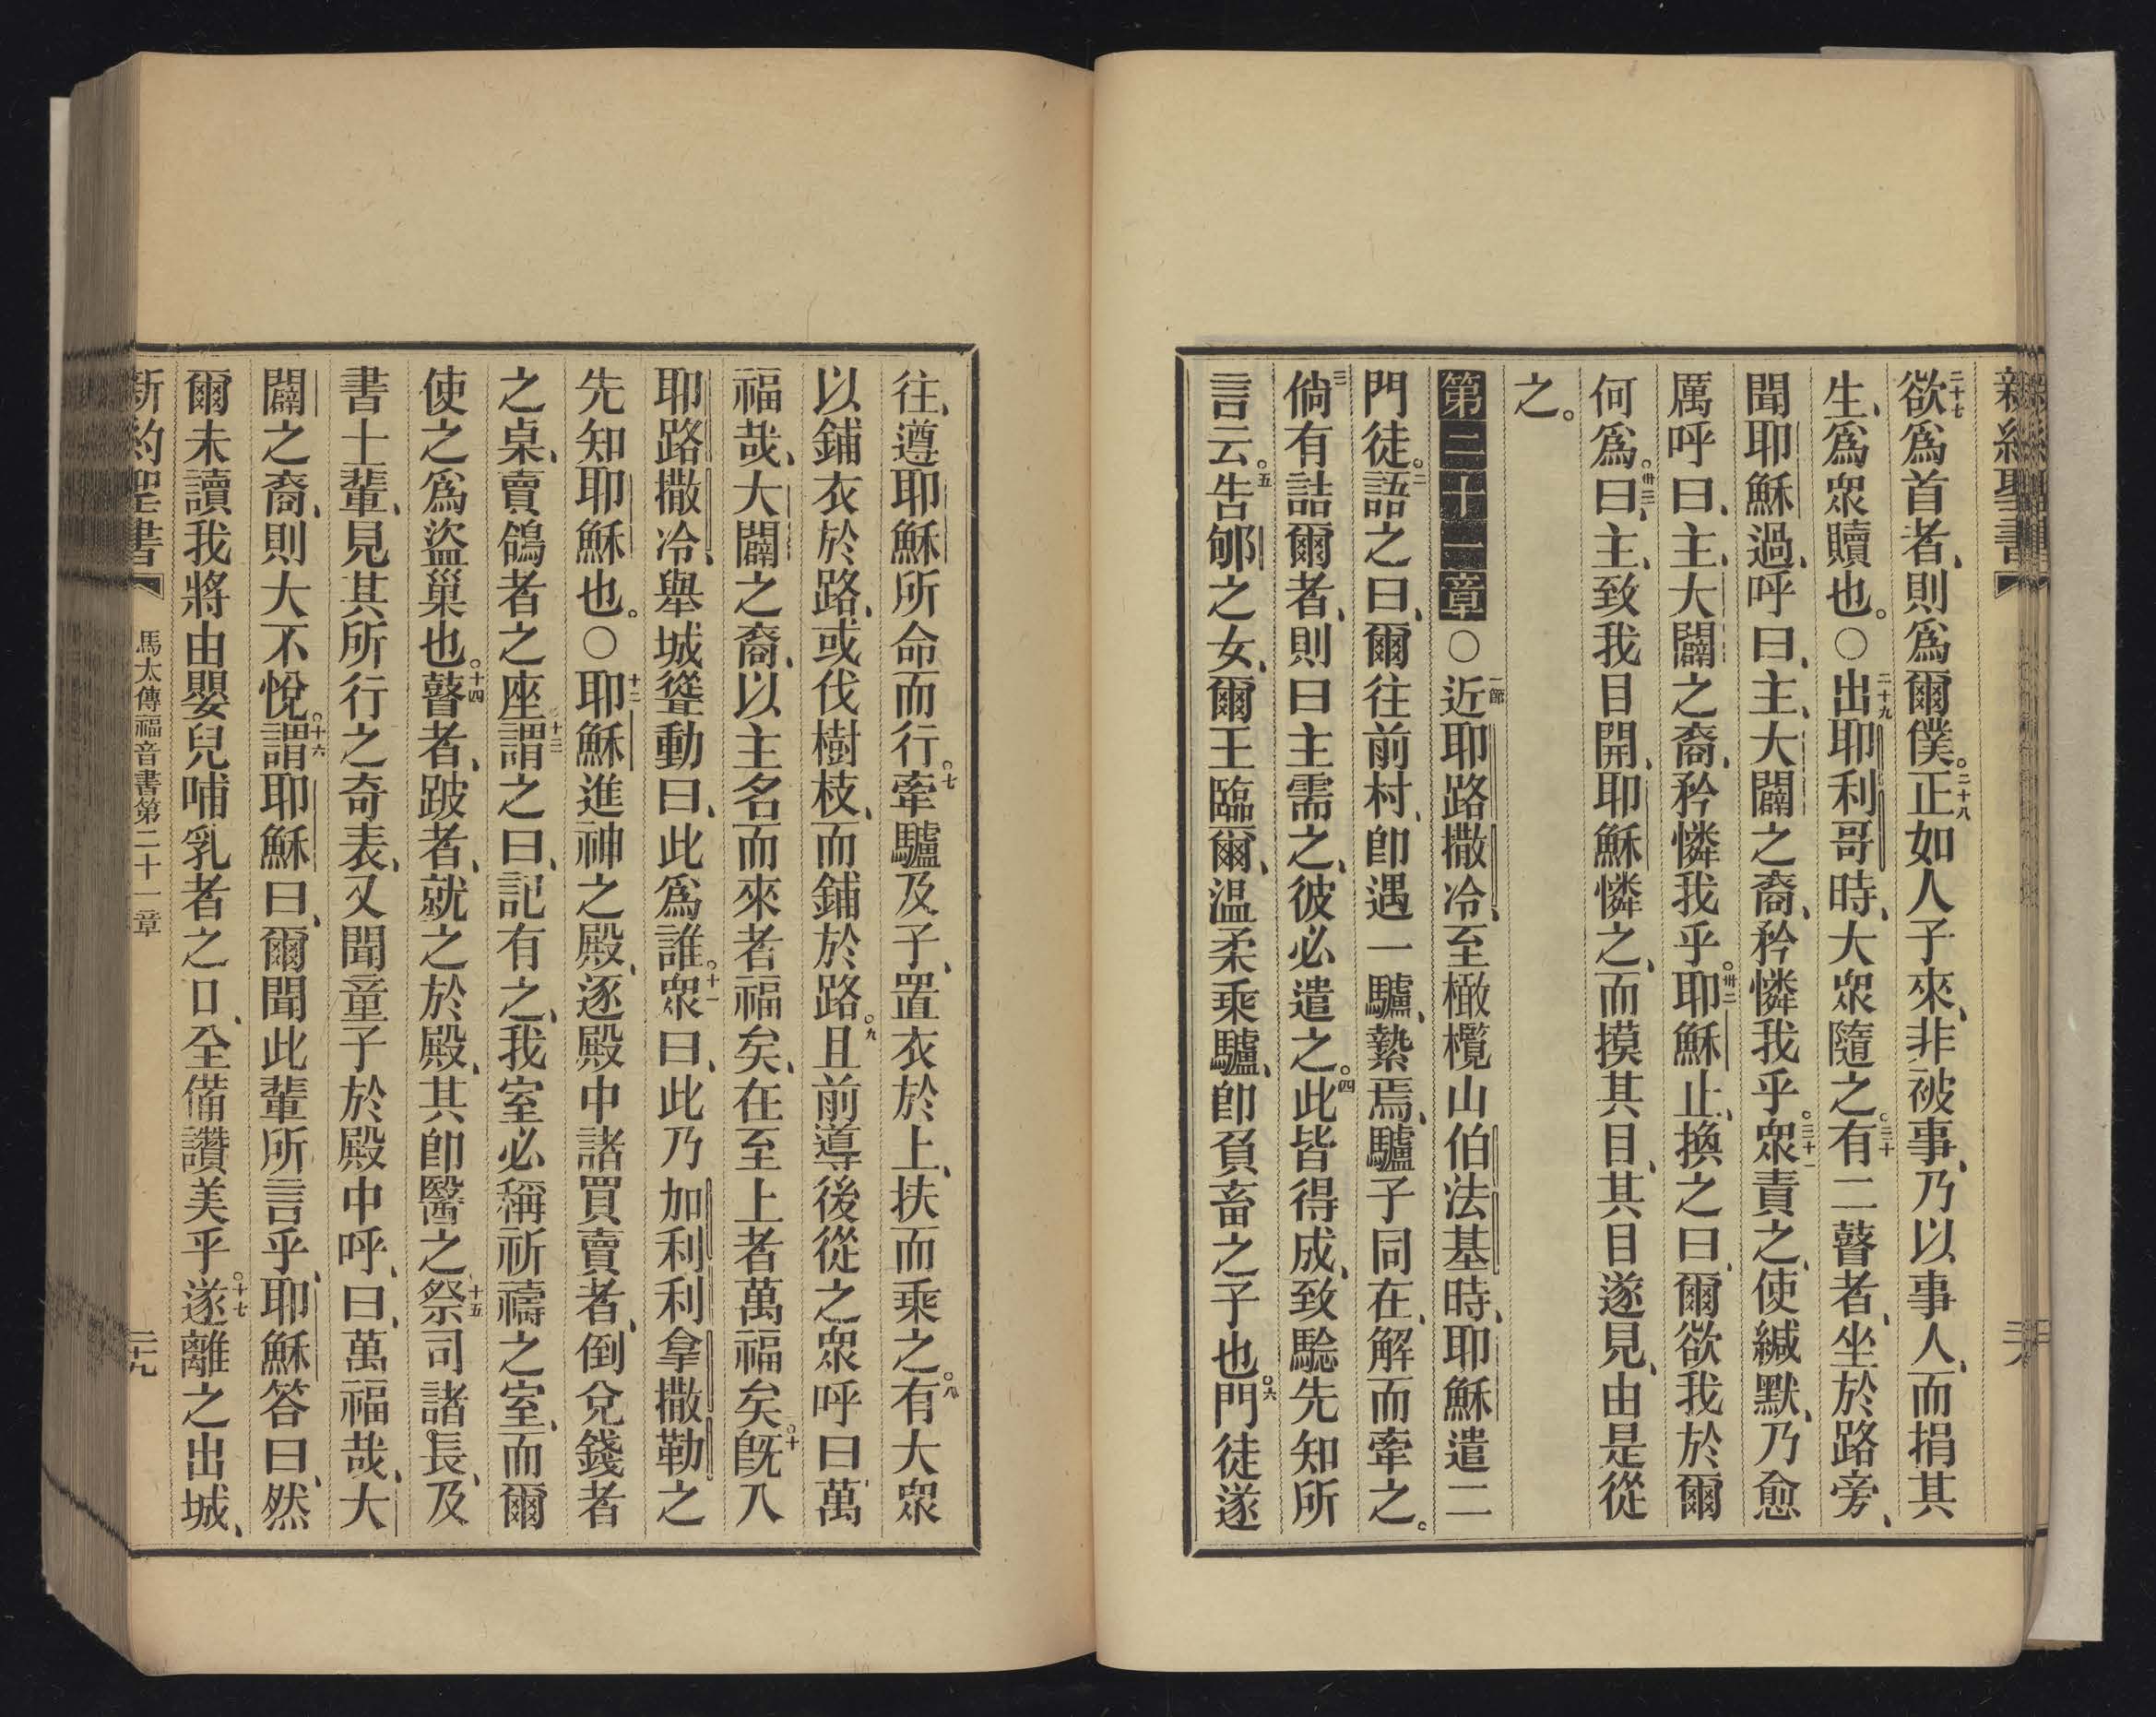 新約聖書
二十七欲爲首者、則爲爾僕。二十八正如人子來、非被事、乃以事人、而捐其
生、爲眾贖也。○二十九出耶利哥時、大眾隨之。三十有二瞽者、坐於路旁、
聞耶穌過、呼曰、主、大闢之裔、矜憐我乎。三十一眾責之、使緘默、乃愈
厲呼曰、主、大闢之裔、矜憐我乎。卅二耶穌止、換之曰、爾欲我於爾
何爲。卅三曰、主、致我目開、耶穌憐之、而摸其目、其目遂見、由是從
之。
第二十一章○一節近耶路撒冷、至橄欖山伯法基時、耶穌遣二
門徒。二語之曰、爾往前村、卽遇一驢、縶焉、驢子同在、解而牽之。
三倘有詰爾者、則曰主需之、彼必遣之。四此皆得成、致騐先知所
言云。五告郇之女、爾王臨爾、温柔乘驢、卽負畜之子也。六門徒遂
往、遵耶穌所命而行。七牽驢及子、置衣於上、扶而乘之。八有大眾
以鋪衣於路、或伐樹枝、而鋪於路。九且前導後從之眾呼曰萬
福哉、大闢之裔、以主名而來者福矣、在至上者萬福矣。十旣入
耶路撒冷、舉城聳動曰、此爲誰。十一眾曰、此乃加利利拿撒勒之
先知耶穌也。○十二耶穌進神之殿、逐殿中諸買賣者、倒兌錢者
之桌、賣鴿者之座。十三謂之曰、記有之、我室必稱祈禱之室、而爾
使之爲盜巢也。十四瞽者、跛者、就之於殿、其卽醫之。十五祭司諸長、及
書士輩、見其所行之奇表、又聞童子於殿中呼、曰、萬福哉、大
闢之裔、則大不悅。十六謂耶穌曰、爾聞此輩所言乎、耶穌答曰、然
爾未讀我將由嬰兒哺乳者之口、全備讚美乎。十七遂離之出城、
新約聖書 馬太傳福音書第二十一章 二十九